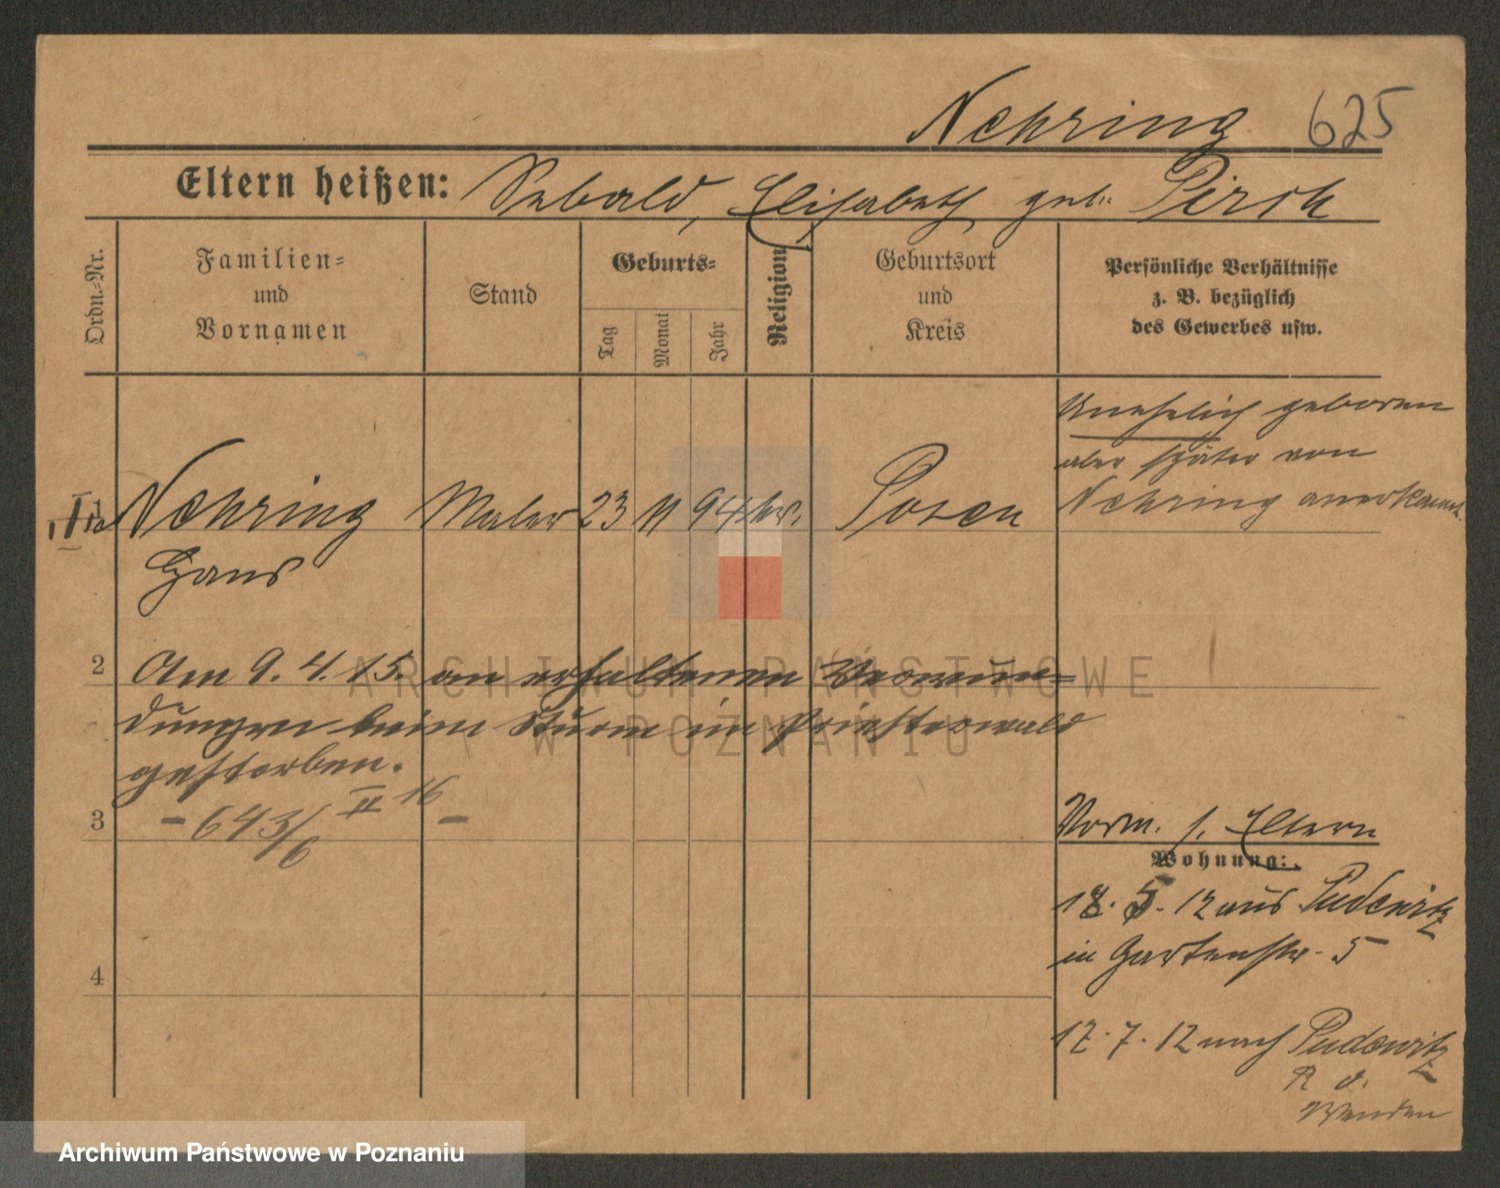 Nehring 625
Eltern heißen: Sebald, Elisabeth geb. Pirsch
Ordn.-Nr.
Familien-
und
Vornamen
Stand
Geburts-
Tag
Monat
Jahr
Religion
Geburtsort
und
Kreis
Persönliche Verhältnisse
z. B. bezüglich
des Gewerbes usw.
Unehelich geboren
aber später von
Nehring anerkannt.
1 Nehring Maler 23 11 94 Posen
Hans
2 Am 9. 4. 15. an erhaltenen Verwun=
dungen beim Sturm im Priesterwald
gestorben.
3 - 643/6 II 16 -
4
Vorm. s. Eltern
Wohnung:
18. 5. 12 aus Pudewitz
in Gartenstr. 5
17. 7. 12 nach Pudewitz
ARCHIWUM PAŃSTWOWE
W POZNANIU
Archiwum Państwowe w Poznaniu